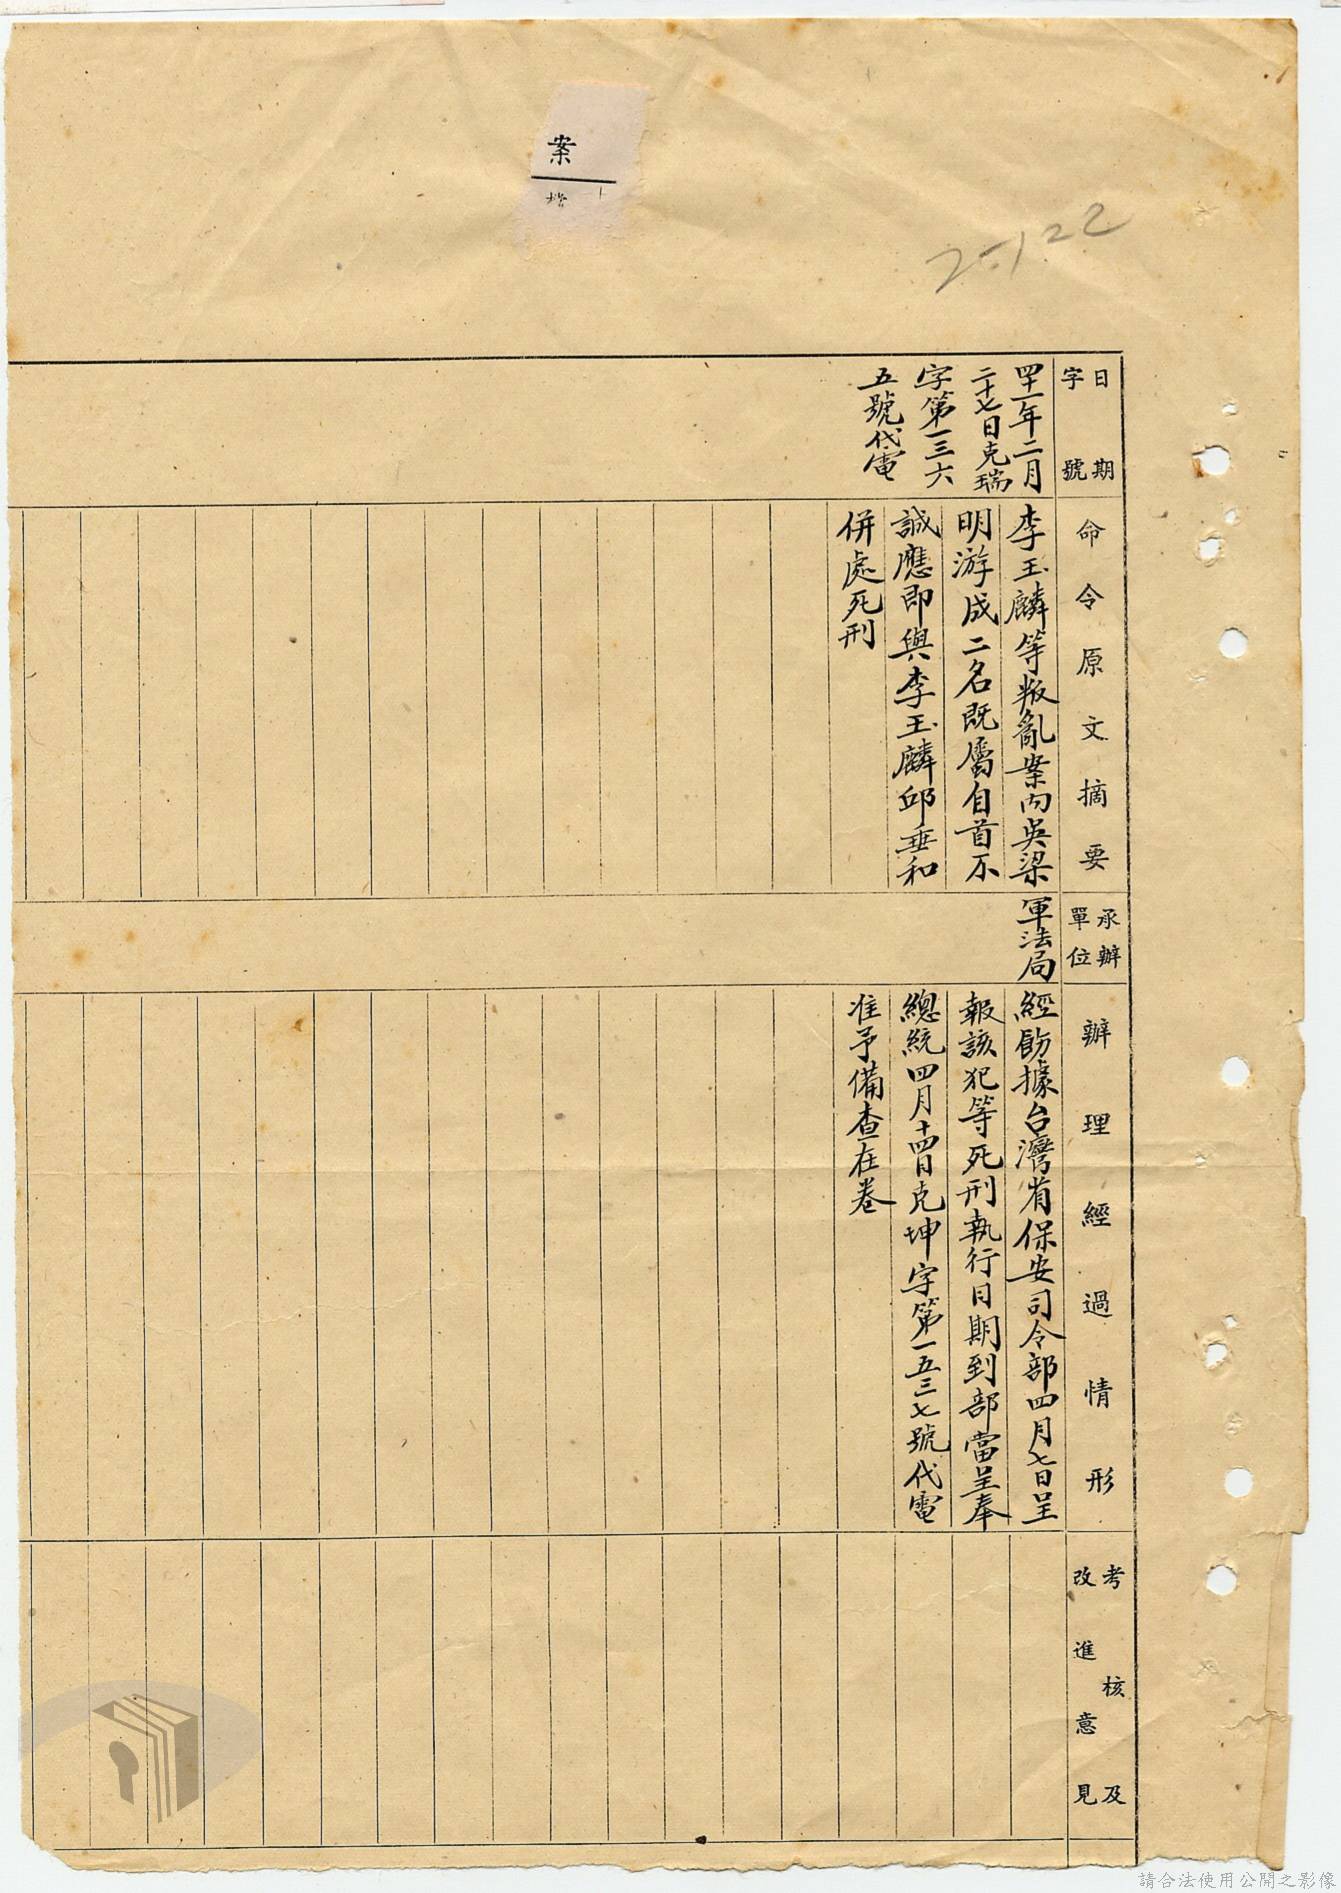 案
25122
日期
字號
命令原文摘要
承辦
單位
辦理經過情形
考核及
改進意見
四十一年二月
二十七日克瑞
字第一三六
五號代電
李玉麟等叛亂案內吳梁
明游成二名既屬自首不
誠應即與李玉麟邱垂和
併處死刑
軍法局
經飭據台灣省保安司令部四月七日呈
報該犯等死刑執行日期到部當呈奉
總統四月十四日克坤字第一五三七號代電
准予備查在卷
請合法使用公開之影像